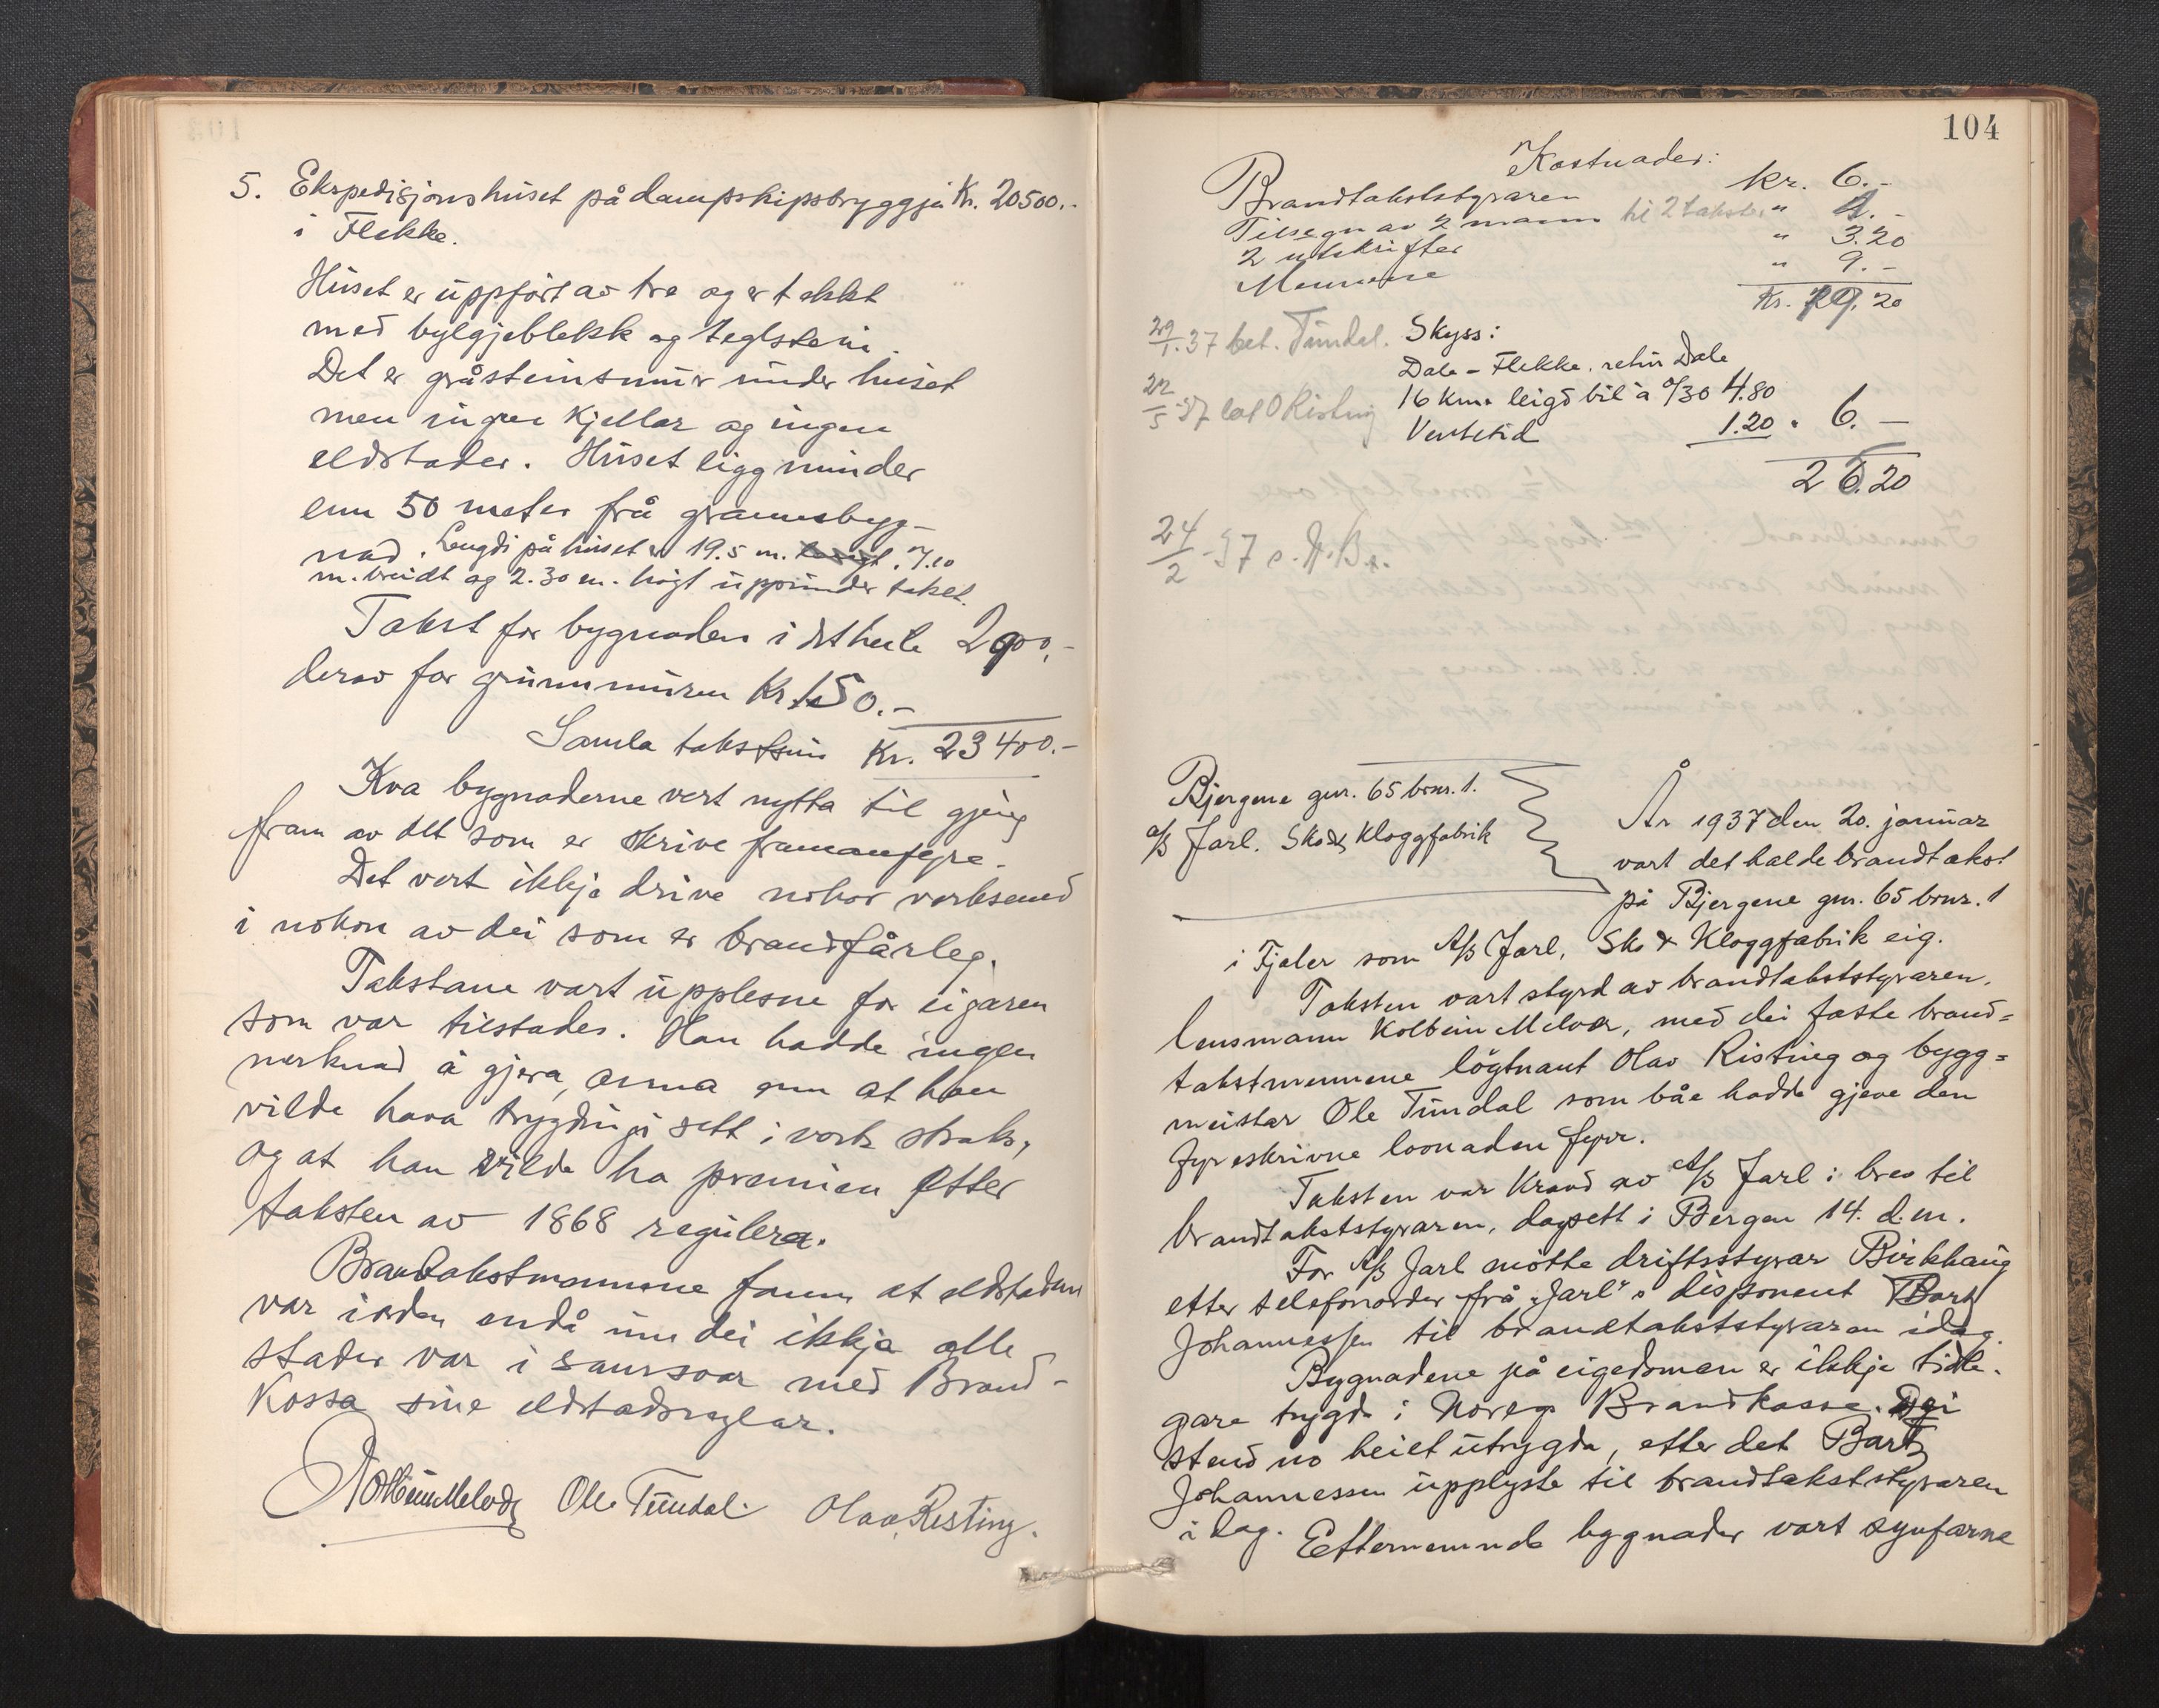 5. Ekspedisjonshuset på dampskipsbryggja Kr. 20500.-
i Flekke.
Huset er uppført av tre og er tekkt
med bylgjeblekk og teglstein.
Det er gråsteinsmur under huset
men ingen kjellar og ingen
eldstader. Huset ligg minder
enn 50 meter frå grannebygg-
nad. Lengdi på huset er 19.5 m. 7.10
m. breidt og 2.30 m. høgt uppunder taket.
Takst for bygnaden i det heile 2900.-
derav for grunnmuren Kr. 150.-
Samla takstsum Kr. 23400.-
Kva bygnaderne vert nytta til gjeng
fram av det som er skrive framanfyre.
Det vert ikkje drive nokor verksemd
i nokon av dei som er brandfårleg.
Takstane vart upplesne for eigaren
som var tilstades. Han hadde ingen
merknad å gjera, anna enn at han
vilde hava trygdingi sett i verk straks,
og at han vilde ha premien etter
taksten av 1868 regulera.
Brandtakstmennene fann at eldstadene
var i orden endå um dei ikkje alle
stader var i samsvar med Brand-
kassa sine eldstadsreglar.
Kolbein Melvær Ole Tundal. Olav Risting.
104
Kostnader:
Brandtakststyraren kr. 6.-
Tilsegn av 2 mann til 2 takster " .-
2 utskrifter " 3.20
Mennene " 9.-
Kr. 20
29/1.37 bet. Tundal. Skyss:
Dale - Flekke, retur Dale
16 km. leigd bil à 0/30 4.80
22/5-37 bet O Risting
Ventetid 1.20 " 6.-
26.20
24/2-37 s. N. Br.
Bjergene gnr. 65 bnr. 1.
A/S Jarl. Sko & Kloggfabrik
År 1937 den 20. januar
vart det halde brandtakst
på Bjergene gnr. 65 bnr. 1
i Fjaler som A/S Jarl, Sko & Kloggfabrik eig.
Taksten vart styrd av brandtakststyraren,
lensmann Kolbein Melvær, med dei faste brand=
takstmennene løytnant Olav Risting og bygg=
meister Ole Tundal som båe hadde gjeve den
fyreskrivne lovnaden fyrr.
Taksten var kravd av A/S Jarl i brev til
brandtakststyraren, dagsett i Bergen 14. d.m.
For A/S Jarl møtte driftsstyrar Birkhaug
etter telefonorder frå "Jarl"s disponent Bartz
Johannessen til brandtakststyraren idag.
Bygnadene på eigedomen er ikkje tidle-
gare trygda i Noregs Brandkasse. Dei
stend no heilt utrygda, etter det Bartz
Johannessen upplyste til brandtakststyraren
i dag. Etternemnde bygnader vart synfarne